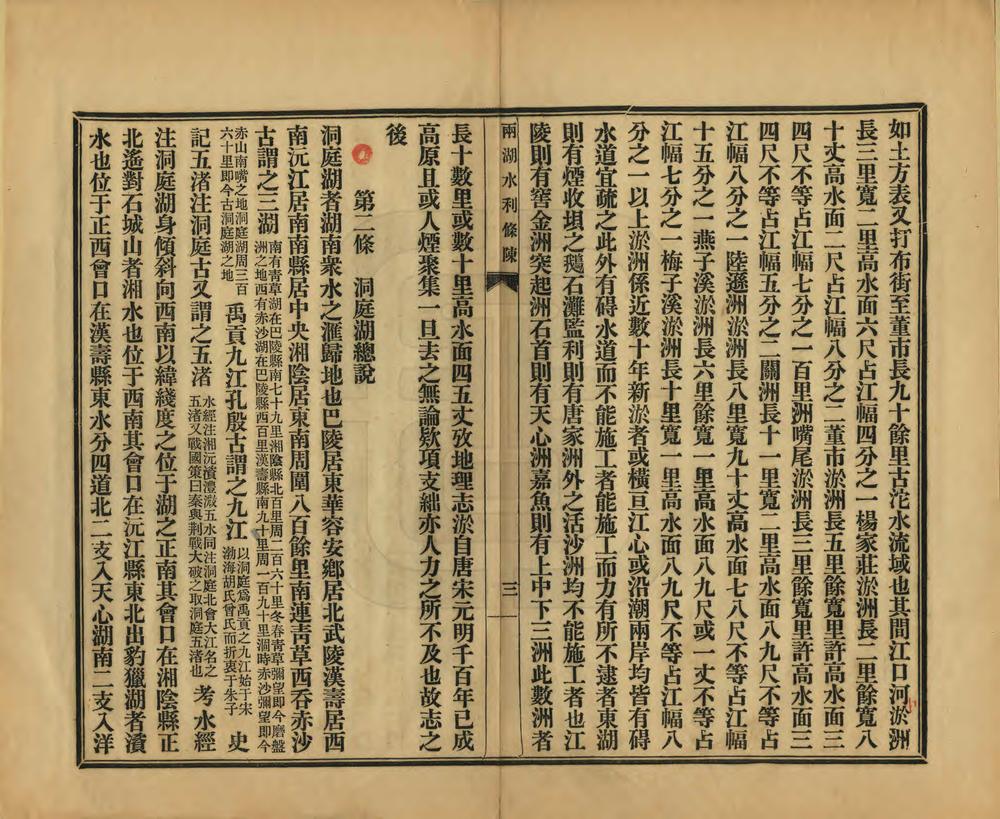 如土方表又打布街至董市長九十餘里古沱水流域也其間江口河淤洲
長三里寬二里高水面六尺占江幅四分之一楊家莊淤洲長二里餘寬八
十丈高水面二尺占江幅八分之二董市淤洲長五里餘寬里許高水面三
四尺不等占江幅七分之一百里洲嘴尾淤洲長三里餘寬里許高水面三
四尺不等占江幅五分之二關洲長十一里寬二里高水面八九尺不等占
江幅八分之一陸遜洲淤洲長八里寬九十丈高水面七八尺不等占江幅
十五分之一燕子溪淤洲長六里餘寬一里高水面八九尺或一丈不等占
江幅七分之一梅子溪淤洲長十里寬一里高水面八九尺不等占江幅八
分之一以上淤洲係近數十年新淤者或橫亘江心或沿潮兩岸均皆有碍
水道宜疏之此外有碍水道而不能施工者能施工而力有所不逮者東湖
則有煙收垻之䳘石灘監利則有唐家洲外之活沙洲均不能施工者也江
陵則有窖金洲突起洲石首則有天心洲嘉魚則有上中下三洲此數洲者
兩湖水利條陳 三
長十數里或數十里高水面四五丈攷地理志淤自唐宋元明千百年已成
高原且或人煙聚集一旦去之無論欵項支絀亦人力之所不及也故志之
後
第二條 洞庭湖總說
洞庭湖者湖南衆水之滙歸地也巴陵居東華容安鄉居北武陵漢壽居西
南沅江居南南縣居中央湘陰居東南周圍八百餘里南連靑草西吞赤沙
古謂之三湖 南有靑草湖在巴陵縣南七十九里湘陰縣北百里周二百六十里冬春靑草彌望即今磨盤
洲之地西有赤沙湖在巴陵縣西百里漢壽縣南九十里周一百九十里涸時赤沙彌望即今
赤山南嘴之地洞庭湖周三百
六十里即今古洞庭湖之地 禹貢九江孔殷古謂之九江 以洞庭爲禹貢之九江始于宋
渤海胡氏曾氏而折衷于朱子 史
記五渚注洞庭古又謂之五渚 水經注湘沅濱澧漵五水同注洞庭北會大江名之
五渚又戰國策曰秦與荆戰大破之取洞庭五渚也 考水經
注洞庭湖身傾斜向西南以緯綫度之位于湖之正南其會口在湘陰縣正
北遙對石城山者湘水也位于西南其會口在沅江縣東北出豹獵湖者濱
水也位于正西會口在漢壽縣東水分四道北二支入天心湖南二支入洋